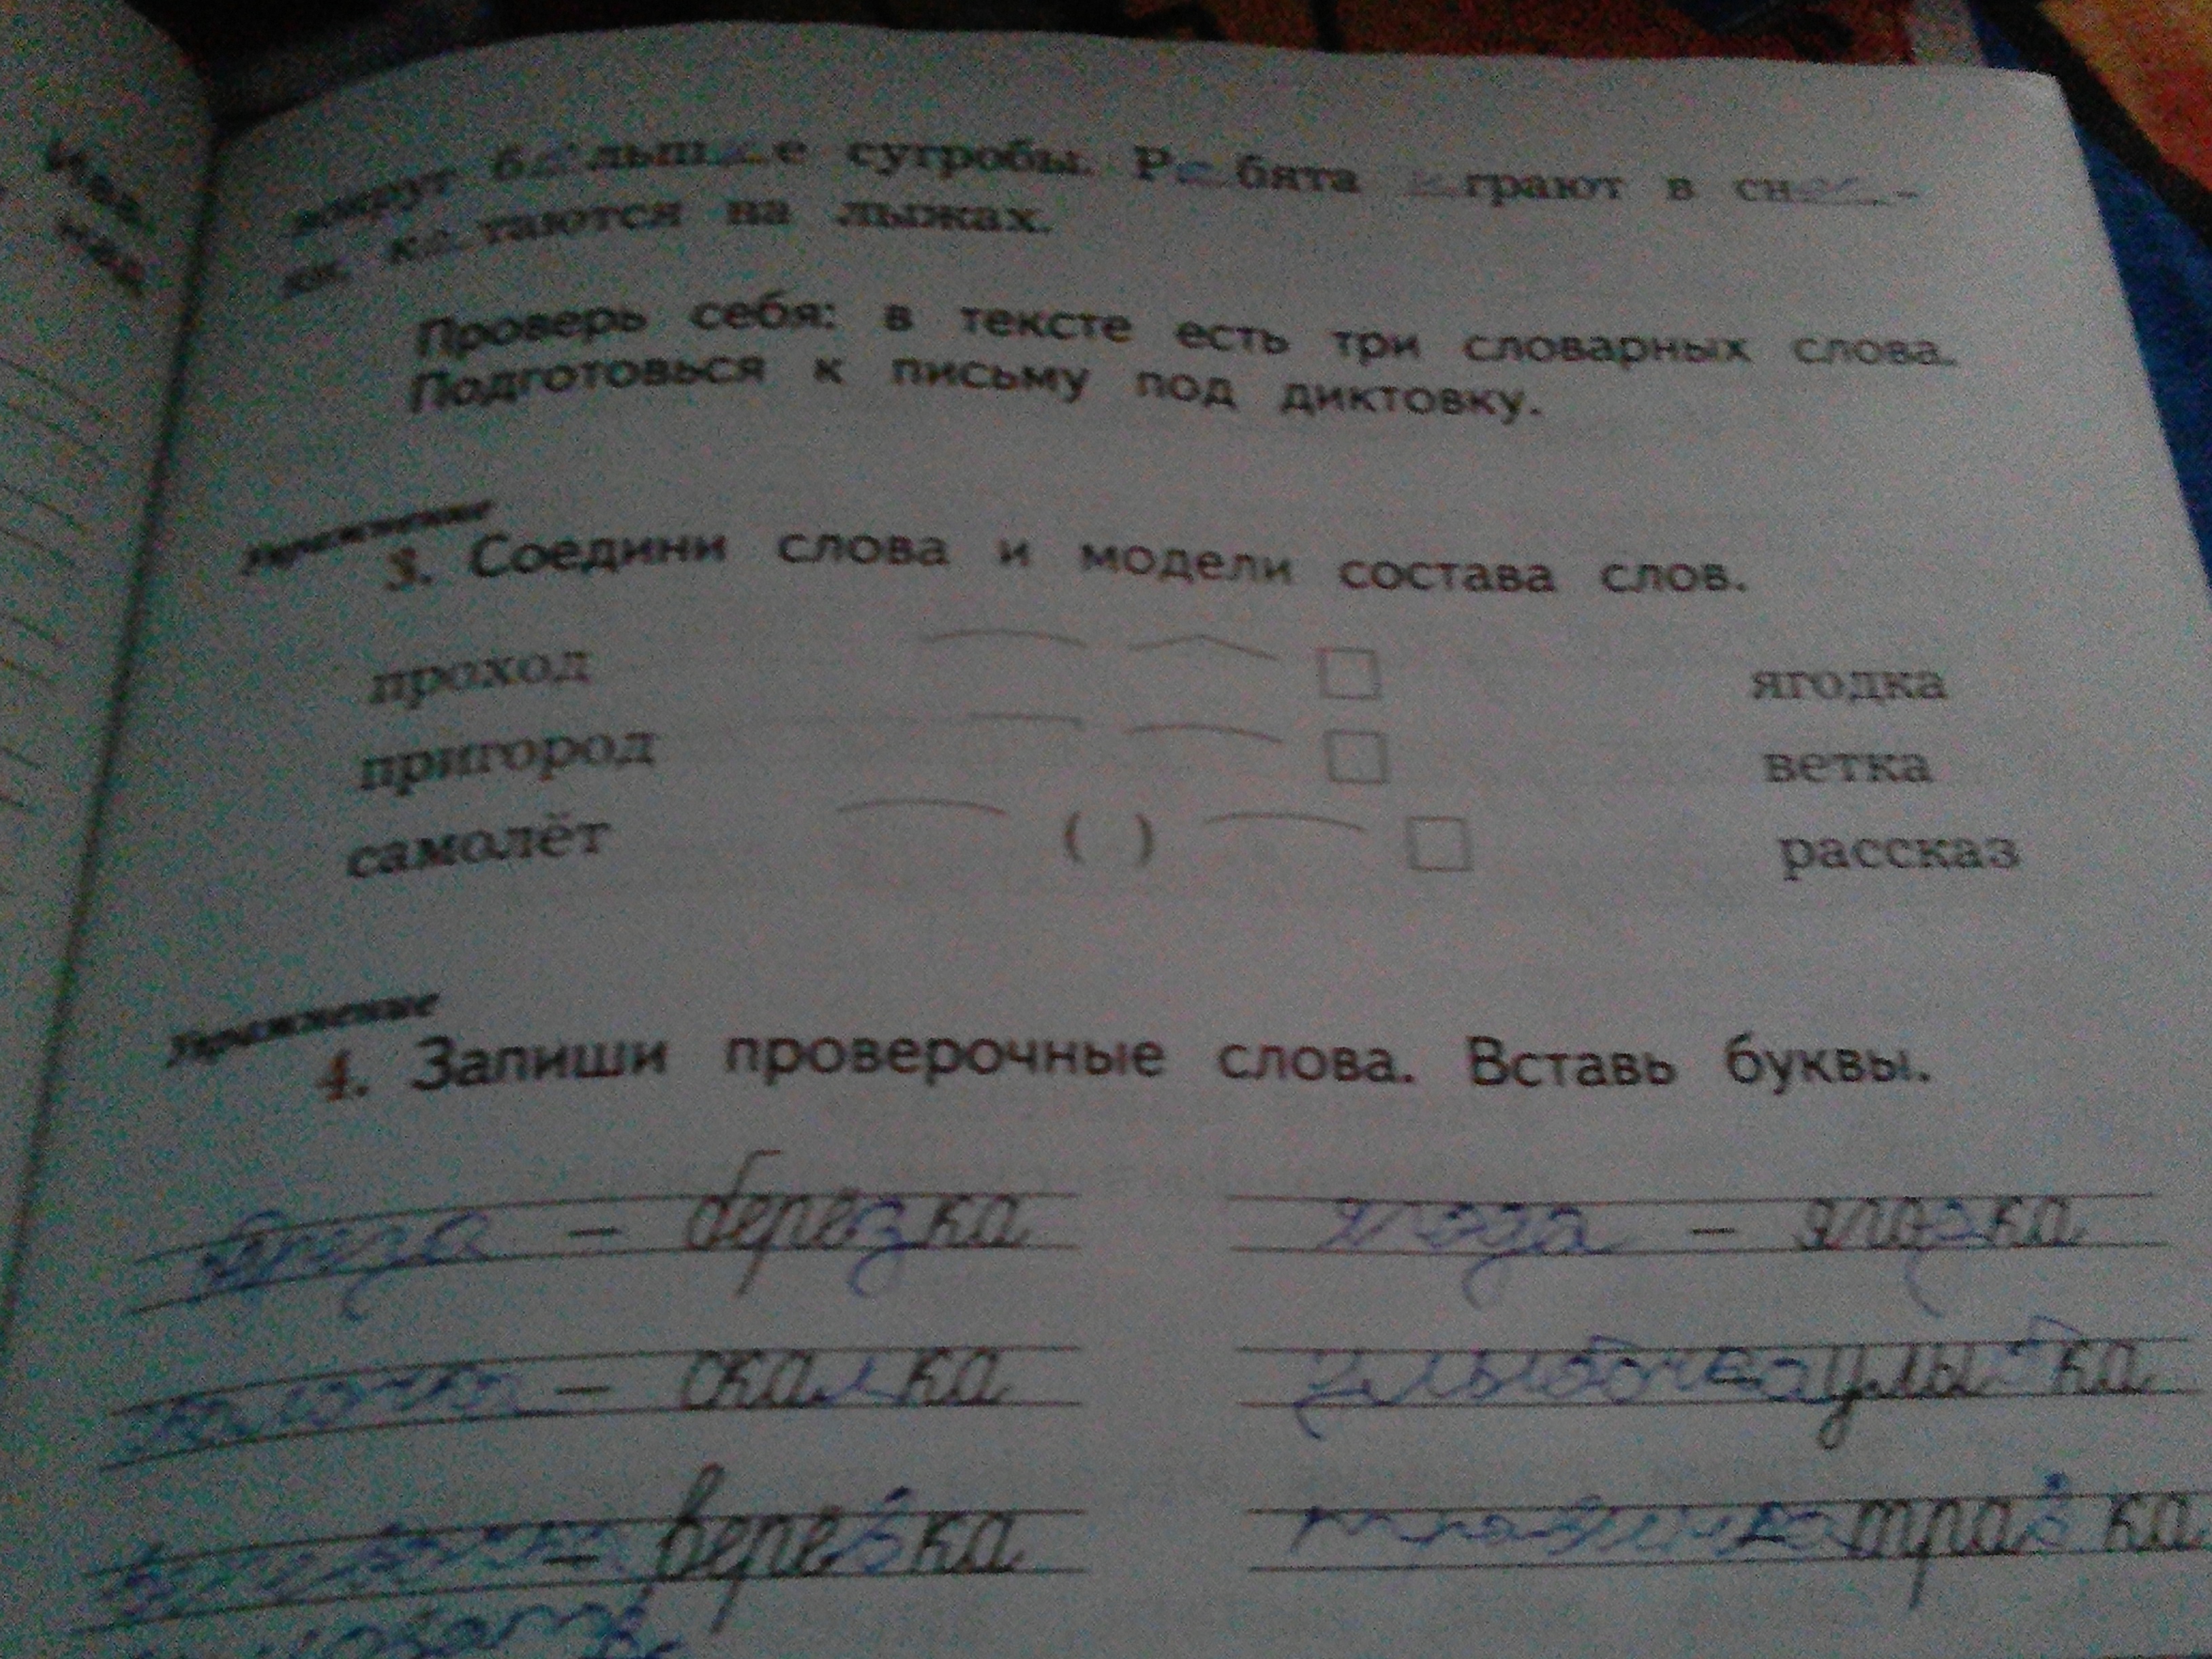 вокруг больш е сугробы. Ребята играют в сн -
ки, катаются на лыжах.
Проверь себя: в тексте есть три словарных слова.
Подготовься к письму под диктовку.
Упражнение
3. Соедини слова и модели состава слов.
проход ягодка
пригород ветка
самолёт ( ) рассказ
Упражнение
4. Запиши проверочные слова. Вставь буквы.
– березка ягода – ягодка
– скалка улыбочка улыбка
– веревка травинка травка